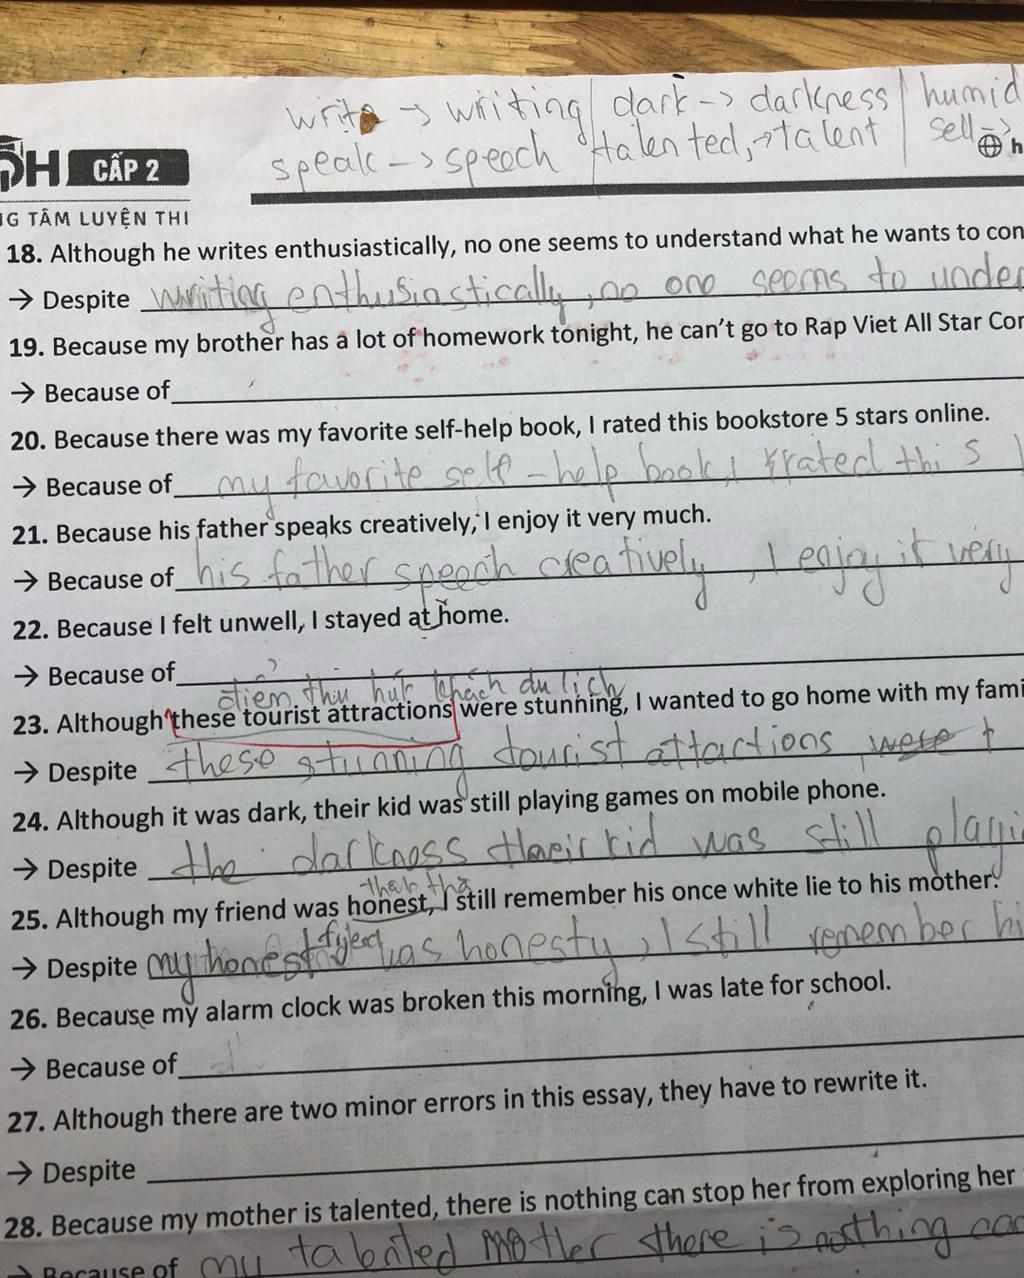 write -> writing / dark -> darkness / humid
speak -> speech / talented, -> talent / sell ->
H CẤP 2
G TÂM LUYỆN THI
h
18. Although he writes enthusiastically, no one seems to understand what he wants to con
→ Despite writing enthusiastically, no one seems to under
19. Because my brother has a lot of homework tonight, he can't go to Rap Viet All Star Con
→ Because of
20. Because there was my favorite self-help book, I rated this bookstore 5 stars online.
→ Because of my favorite self-help book, I rated this
21. Because his father speaks creatively, I enjoy it very much.
→ Because of his father speech creatively, I enjoy it very
22. Because I felt unwell, I stayed at home.
→ Because of
điểm thu hút khách du lịch
23. Although these tourist attractions were stunning, I wanted to go home with my fami
→ Despite these stunning tourist attactions, were
24. Although it was dark, their kid was still playing games on mobile phone.
→ Despite the darkness their kid was still playi
25. Although my friend was honest, I still remember his once white lie to his mother.
→ Despite my honest was honesty, I still remember hi
26. Because my alarm clock was broken this morning, I was late for school.
→ Because of
27. Although there are two minor errors in this essay, they have to rewrite it.
→ Despite
28. Because my mother is talented, there is nothing can stop her from exploring her
Because of my talented mother there is nothing can